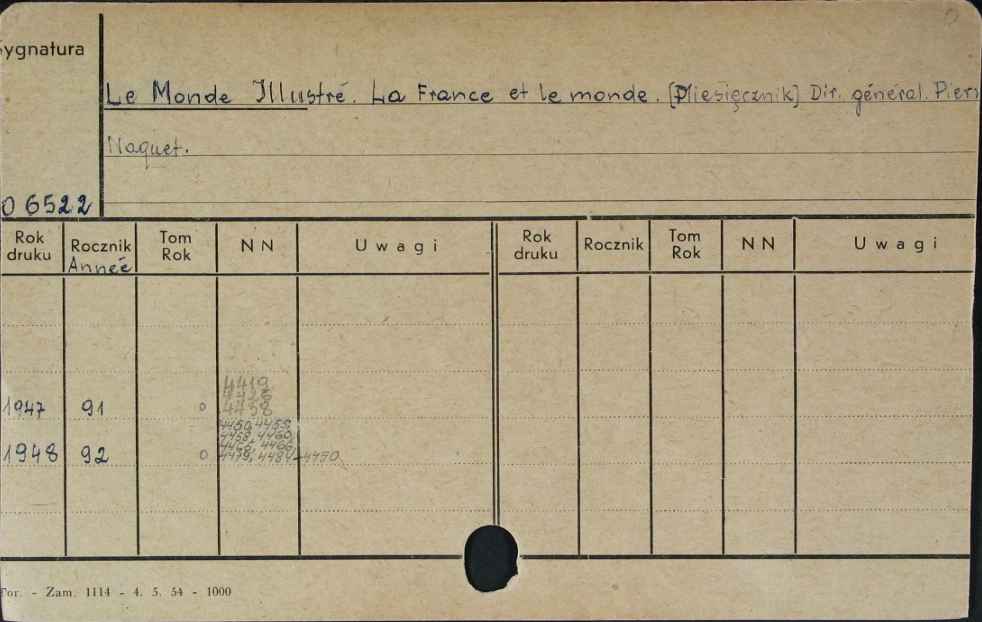 Sygnatura
Le Monde Illustré. La France et le monde. [Miesięcznik] Dir. général. Pierr
Naquet.
O 6522
Rok druku Rocznik Tom Rok N N Uwagi Rok druku Rocznik Tom Rok N N Uwagi
Année
4419
4428
1947 91 o 4438
4450, 4455,
4458, 4460,
1948 92 o 4479, 4484-4490
Tor. - Zam. 1114 - 4. 5. 54 - 1000